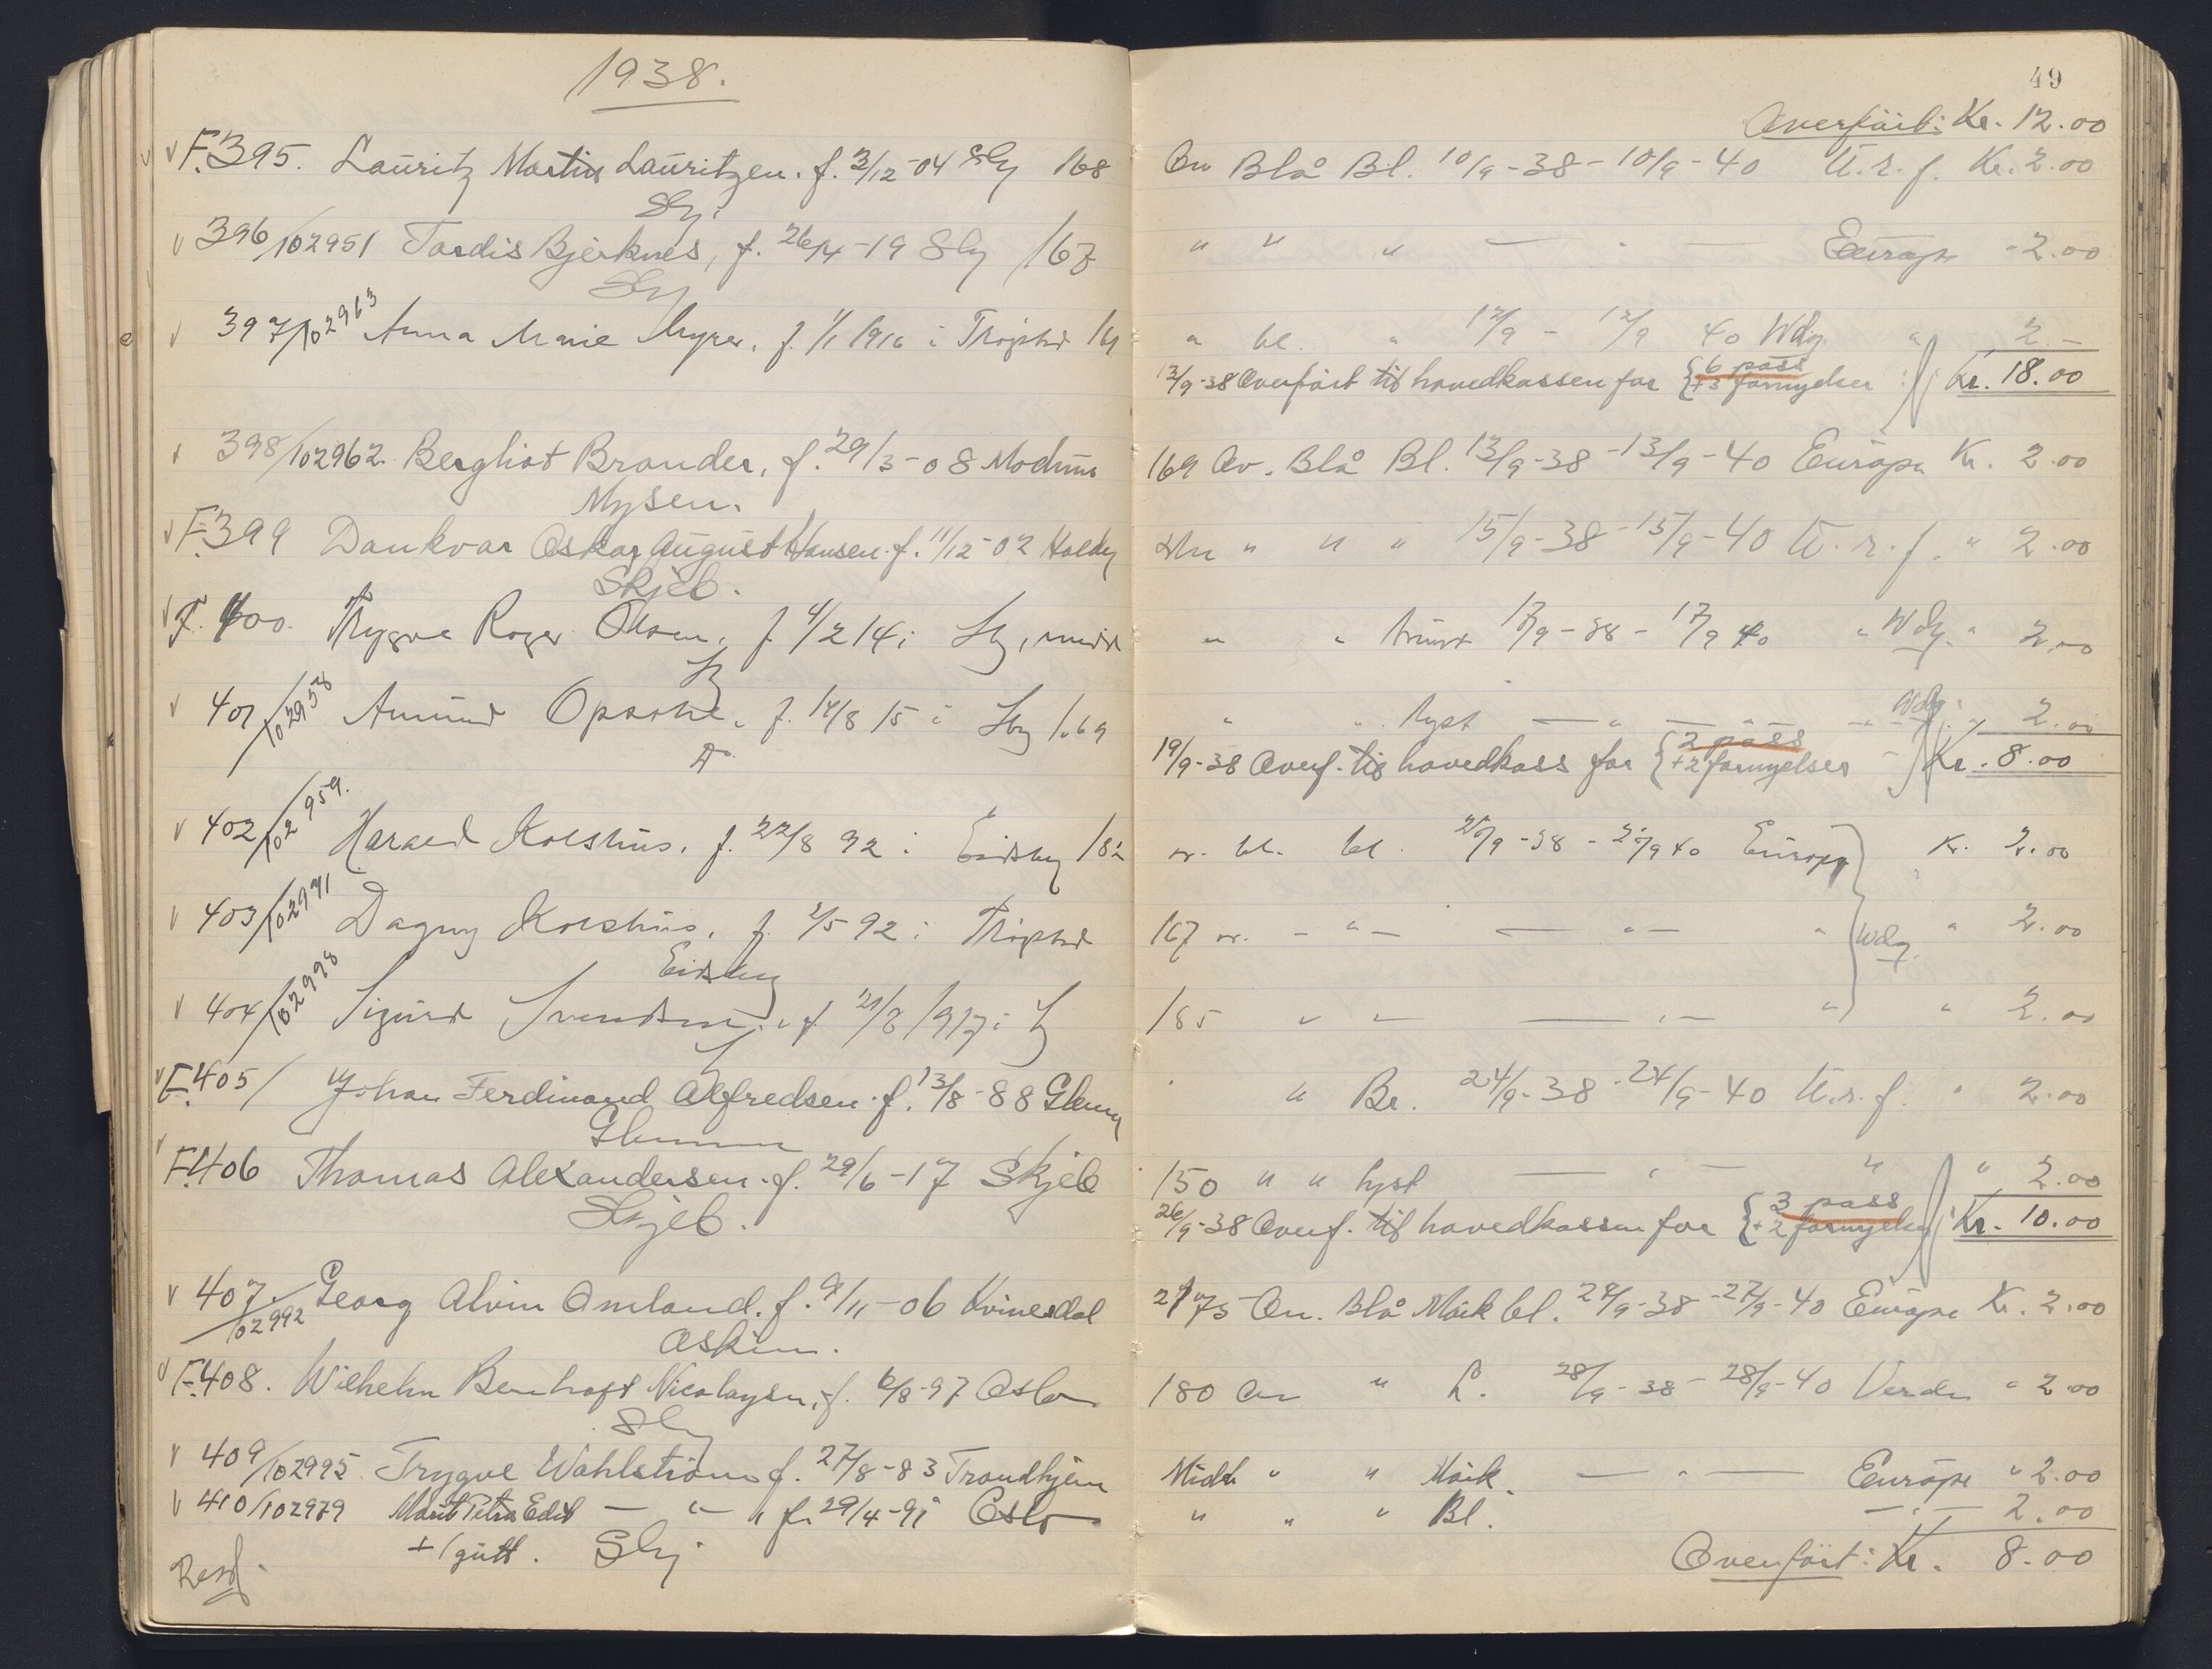 1938.
F.395. Lauritz Martin Lauritzen. f. 3/12-04 Sbg 168
Sbg.
396/102951 Tordis Bjerknes, f. 26/4-19 Sbg 167
Sbg
397/102963 Anna Marie Myrer. f. 1/1 1916 i Trøgstad 161
398/102962. Bergliot Brander, f. 29/3-08 Modum
Mysen.
F.399 Dankvar Oskar August Hansen. f. 11/12-02 Halden
Skjeb.
F.400. Thrygve Roger Olsen, f 4/2 14 i Sbg, midd
401/102958 Amund Opsahl. f. 14/8 15 i Sbg 1.69
402/102959. Harald Kolshus. f. 22/8 92 i Eidsbg 182
403/102971 Dagny Kolshus. f. 2/5 92 i Trøgstad
Eidsbg
404/102998 Sigurd Svendsen. f 21/8 1917 i
F.405/ Johan Ferdinand Alfredsen. f. 13/8-88 Glemm
Glemmen
F.406 Thomas Alexandersen. f. 29/6-17 Skjeb
Skjeb.
407/102992 Georg Alvin Omland. f. 9/11-06 Kvinesdal
Askim.
F.408. Wilhelm Bernhoft Nicolaysen, f. 6/8-97 Oslo
Sbg
409/102995 Trygve Wahlstrøm f. 27/8-83 Trondhjem
410/102979 Marit Petra Edit — " — " f. 29/4-91 Oslo
+ 1 gutt. Sbg
49
Overført: Kr. 12.00
Ov Blå Bl. 10/9-38-10/9-40 U.s.f. Kr. 2.00
" " " — " — Europa - 2.00
" bl. " 12/9 - 12/9 40 Wdg. " 2.-
13/9-38 Overført til hovedkassen for {6 pass + 3 fornyelser Kr. 18.00
169 Ov. Blå Bl. 13/9-38-13/9-40 Europa Kr. 2.00
" " " 15/9-38-15/9-40 U.s.f. " 2.00
" " brunt 17/9-38-17/9 40 " Wdg. " 2.00
" " lyst — " — " — Wdg. " 2.00
19/9-38 Overf. til hovedkass for {2 pass + 2 fornyelser Kr. 8.00
bl. bl. 20/9-38-20/9 40 Europa Kr. 2.00
167 — " — — " — " Wdg " 2.00
185 " " — " — " " 2.00
" Br. 24/9-38-24/9-40 U.s.f. " 2.00
150 " " lyst — " — " " 2.00
26/9-38 Overf. til hovedkassen for {3 pass + 2 fornyelser Kr. 10.00
175 Ov. Blå Mørk bl. 27/9-38-27/9-40 Europa Kr. 2.00
180 Ov " L. 28/9-38-28/9-40 Verden " 2.00
Midd " " Mørk — " — Europa " 2.00
" " " Bl. — " — 2.00
Overført: Kr. 8.00